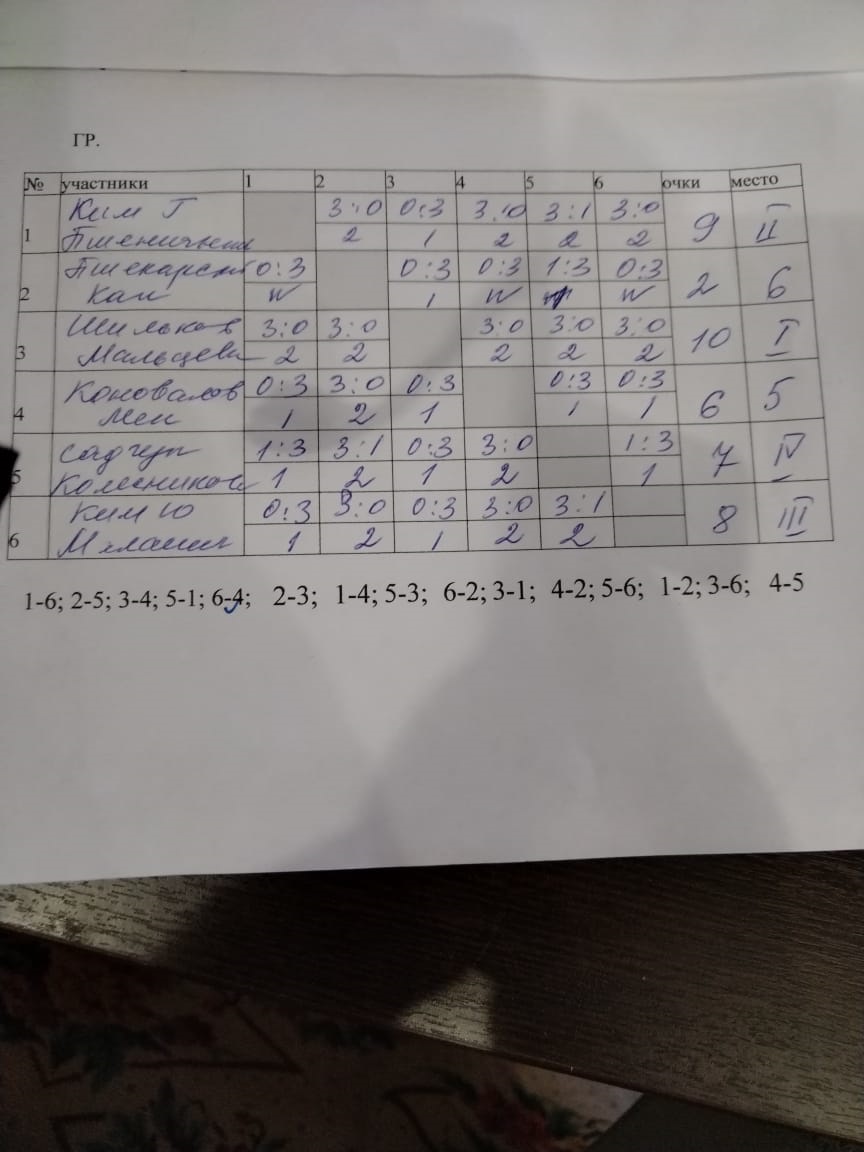 ГР.
№ участники 1 2 3 4 5 6 очки место
Ким Г 3:0 0:3 3:0 3:1 3:0
1 2 1 2 2 2 9 II
0:3 0:3 0:3 1:3 0:3
2 Кан W 1 W W 2 6
Шильков 3:0 3:0 3:0 3:0 3:0
3 Мальцева 2 2 2 2 2 10 I
Коновалов 0:3 3:0 0:3 0:3 0:3
4 Мен 1 2 1 1 1 6 5
1:3 3:1 0:3 3:0 1:3
5 Колесникова 1 2 1 2 1 7 IV
Ким Ю 0:3 3:0 0:3 3:0 3:1
6 1 2 1 2 2 8 III
1-6; 2-5; 3-4; 5-1; 6-4; 2-3; 1-4; 5-3; 6-2; 3-1; 4-2; 5-6; 1-2; 3-6; 4-5